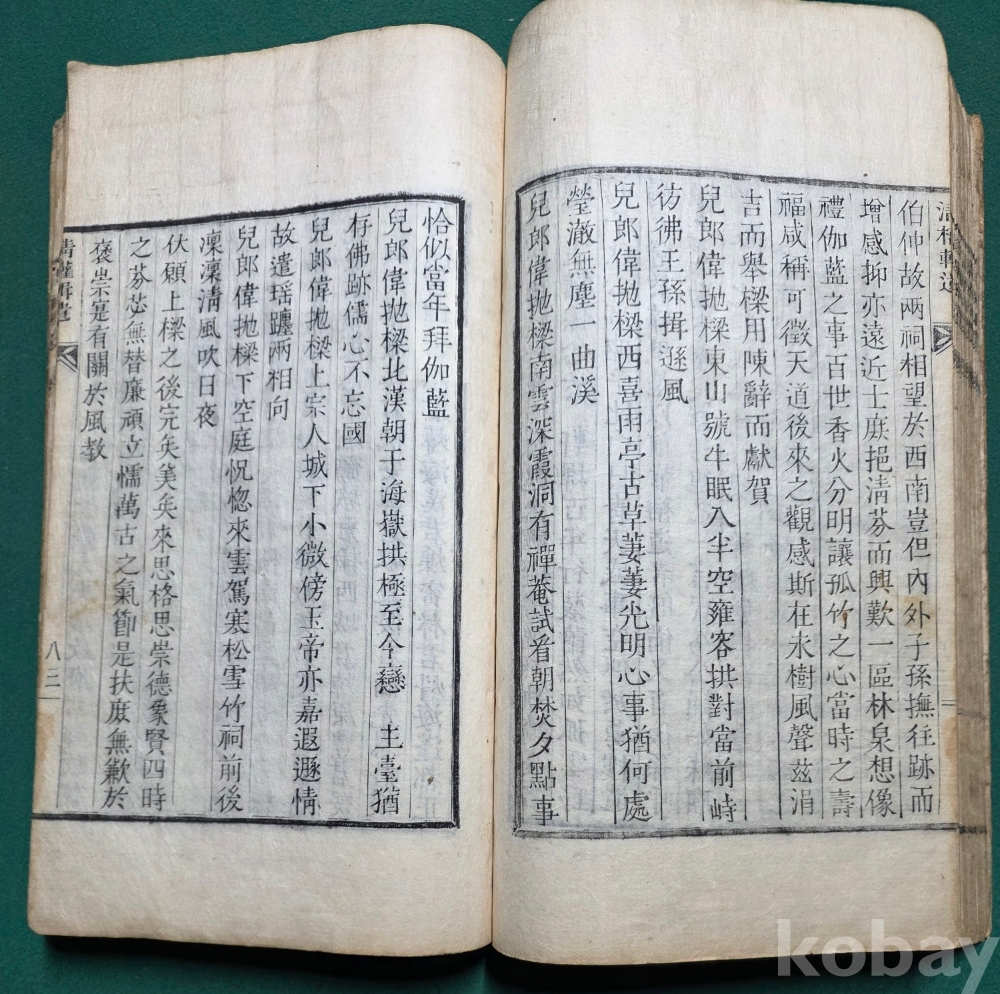 伯仲故兩祠相望於西南豈但內外子孫撫往跡而
增感抑亦遠近士庶挹淸芬而興歎一區林泉想像
禮伽藍之事百世香火分明讓孤竹之心當時之壽
福咸稱可徵天道後來之觀感斯在永樹風聲茲涓
吉而舉樑用陳辭而獻賀
兒郞偉拋樑東山號牛眠入半空雍容拱對當前峙
彷彿王孫揖遜風
兒郞偉拋樑西喜雨亭古草萋萋光明心事猶何處
瑩澈無塵一曲溪
兒郞偉拋樑南雲深霞洞有禪菴試看朝焚夕點事
恰似當年拜伽藍
兒郞偉拋樑北漢朝于海嶽拱極至今戀 主臺猶
存佛跡儒心不忘國
兒郞偉拋樑上宗人城下小微傍玉帝亦嘉遐遯情
故遣瑶躔兩相向
兒郞偉拋樑下空庭怳惚來雲駕寒松雪竹祠前後
凜凜淸風吹日夜
伏願上樑之後完矣美矣來思格思崇德象賢四時
之芬苾無替廉頑立懦萬古之氣節是扶庶無歉於
褒崇寔有關於風敎
八三
kobay